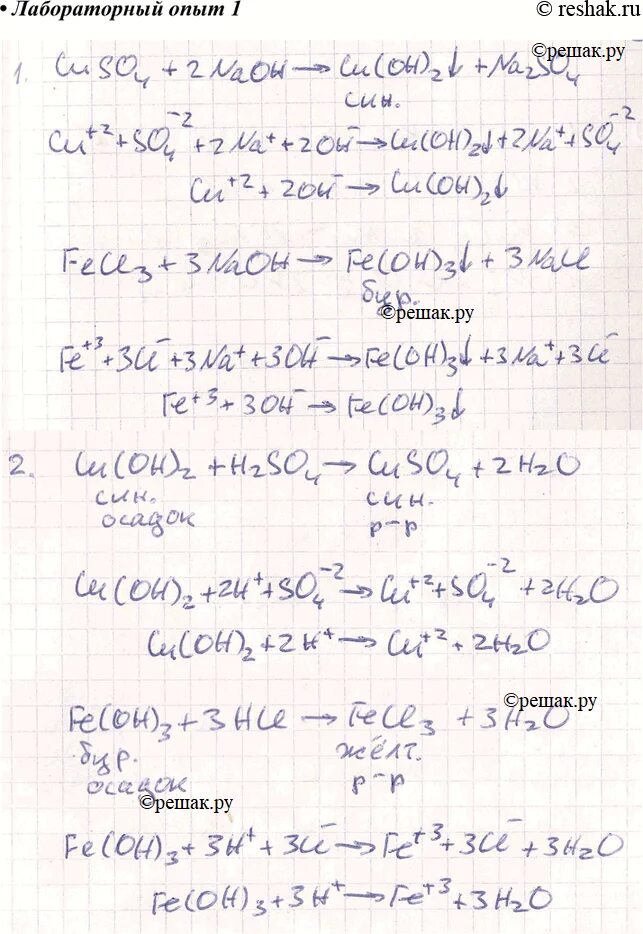 • Лабораторный опыт 1
© reshak.ru
©решак.ру
1. CuSO₄ + 2NaOH → Cu(OH)₂↓ + Na₂SO₄
син.
Cu⁺² + SO₄⁻² + 2Na⁺ + 2OH⁻ → Cu(OH)₂↓ + 2Na⁺ + SO₄⁻²
Cu⁺² + 2OH⁻ → Cu(OH)₂↓
FeCl₃ + 3NaOH → Fe(OH)₃↓ + 3NaCl
бур.
©решак.ру
Fe⁺³ + 3Cl⁻ + 3Na⁺ + 3OH⁻ → Fe(OH)₃↓ + 3Na⁺ + 3Cl⁻
Fe⁺³ + 3OH⁻ → Fe(OH)₃↓
2. Cu(OH)₂ + H₂SO₄ → CuSO₄ + 2H₂O
син. син.
осадок р-р
Cu(OH)₂ + 2H⁺ + SO₄⁻² → Cu⁺² + SO₄⁻² + 2H₂O
Cu(OH)₂ + 2H⁺ → Cu⁺² + 2H₂O
©решак.ру
Fe(OH)₃ + 3HCl → FeCl₃ + 3H₂O
бур. жёлт.
осадок р-р
©решак.ру
Fe(OH)₃ + 3H⁺ + 3Cl⁻ → Fe⁺³ + 3Cl⁻ + 3H₂O
Fe(OH)₃ + 3H⁺ → Fe⁺³ + 3H₂O